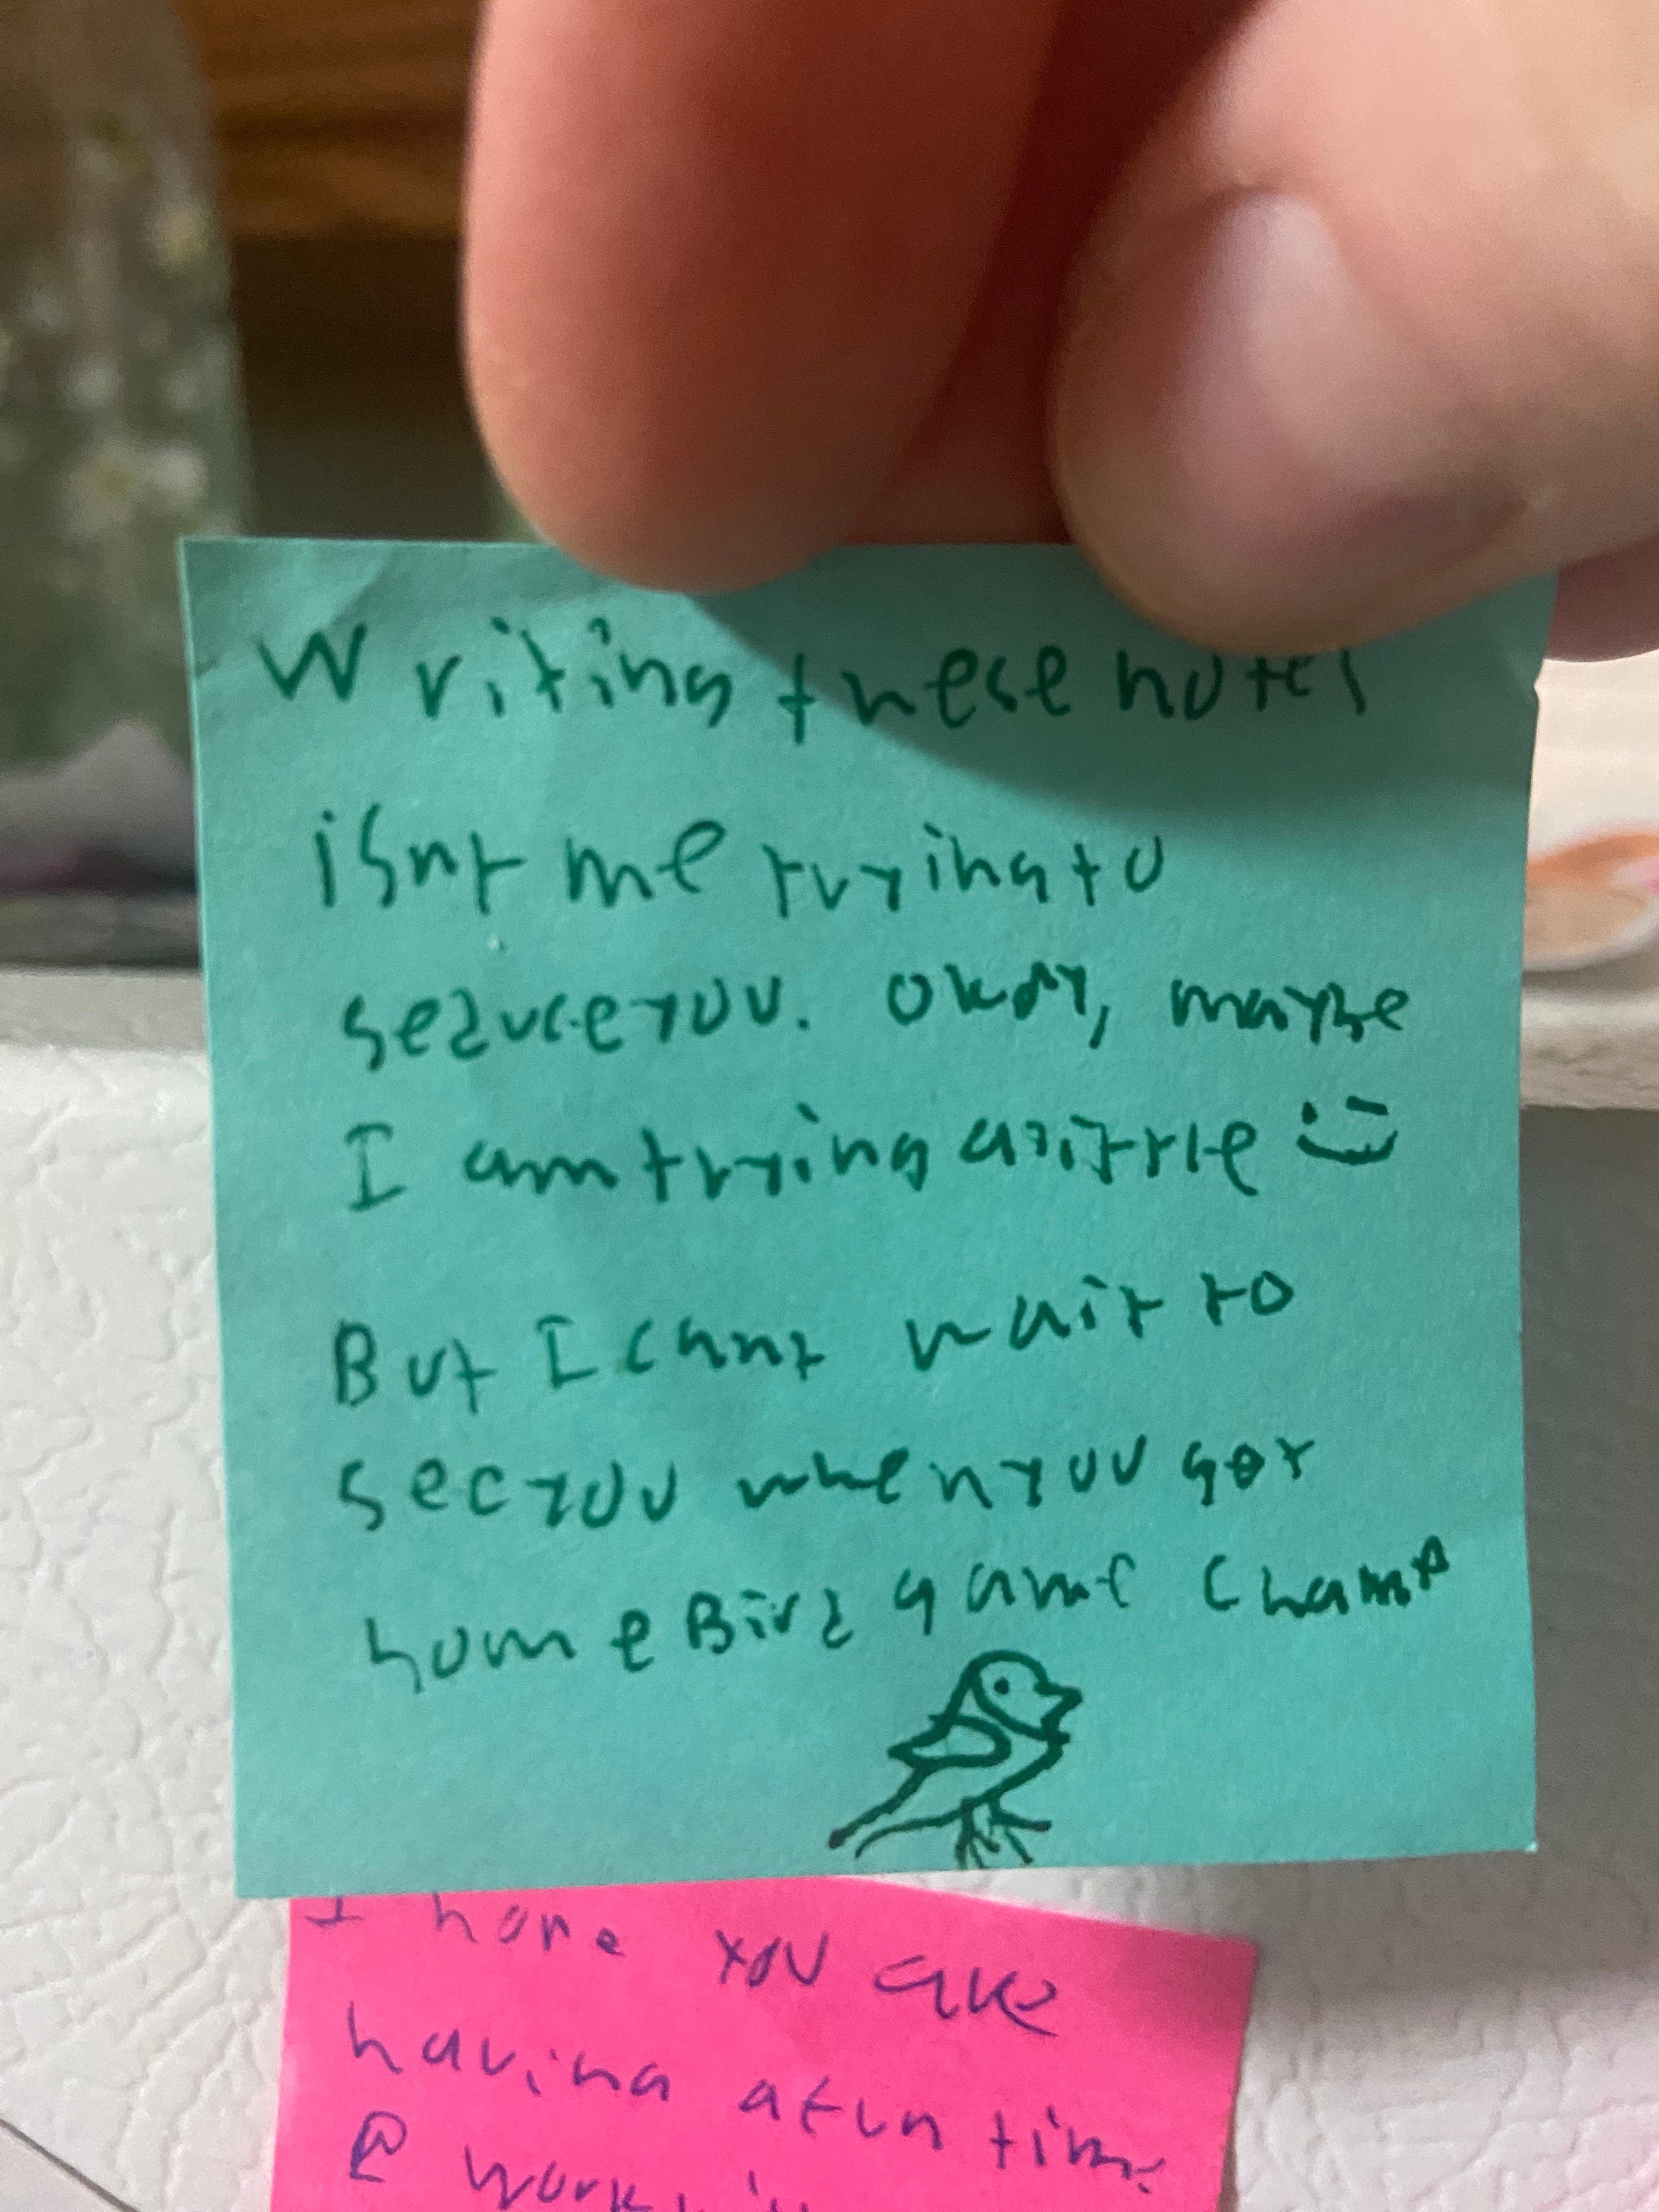 Writing these notes
isnt me trying to
seduce you. okay, maybe
I am trying a little :)
But I cant wait to
see you when you get
home Bird game champ
I hope you are
having a fun time
@ work